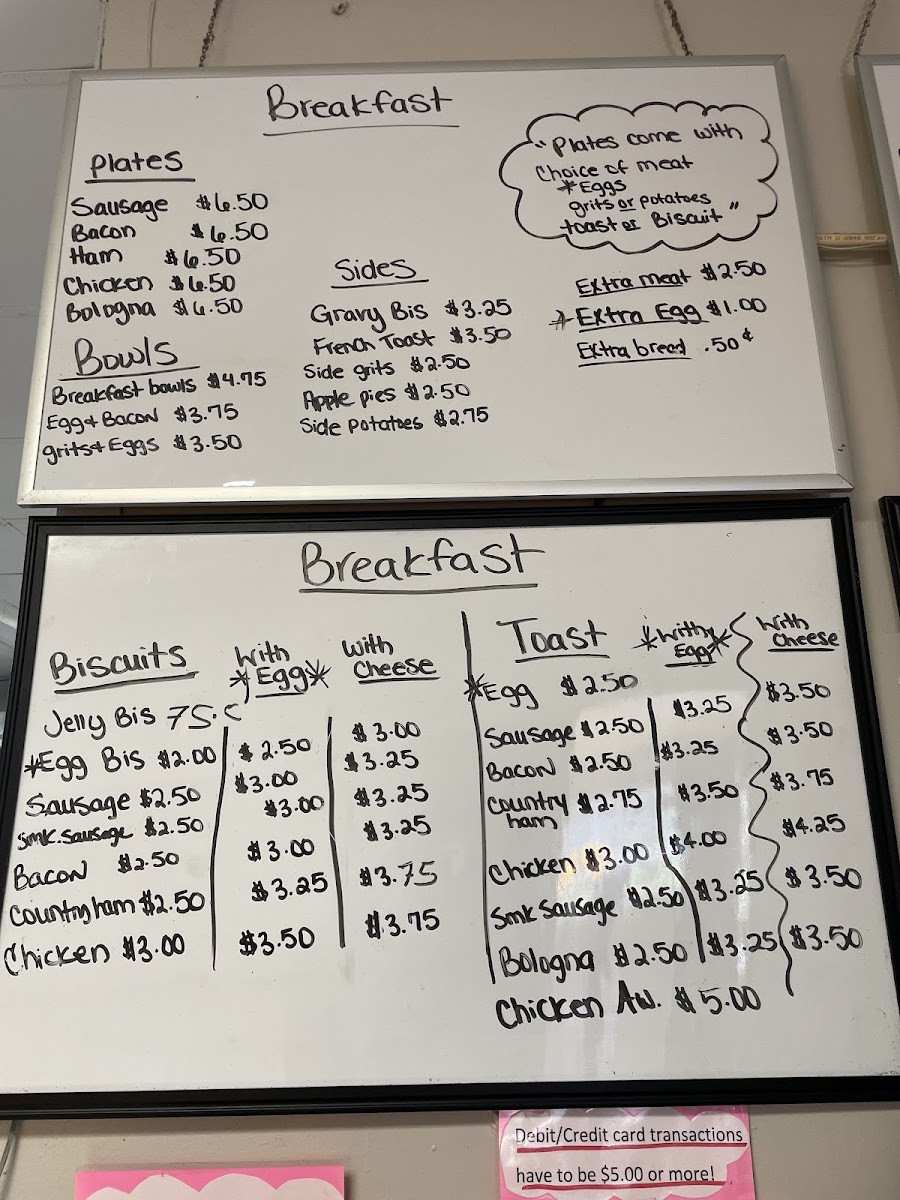 Breakfast
Plates
Sausage $6.50
Bacon $6.50
Ham $6.50
Chicken $6.50
Bologna $6.50
Bowls
Breakfast bowls $4.75
Egg + Bacon $3.75
grits + Eggs $3.50
Sides
Gravy Bis $3.25
French Toast $3.50
Side grits $2.50
Apple pies $2.50
Side potatoes $2.75
"Plates come with
Choice of meat
*Eggs
grits or potatoes
toast or Biscuit"
Extra meat $2.50
*Extra Egg $1.00
Extra bread .50¢
Breakfast
Biscuits With *Egg* With Cheese
Jelly Bis 75.¢
*Egg Bis $2.00 $2.50 $3.00
Sausage $2.50 $3.00 $3.25
Smk. Sausage $2.50 $3.00 $3.25
Bacon $2.50 $3.00 $3.25
Country ham $2.50 $3.25 $3.75
Chicken $3.00 $3.50 $3.75
Toast *With Egg* With Cheese
*Egg $2.50 $3.50
Sausage $2.50 $3.25 $3.50
Bacon $2.50 $3.25 $3.75
Country ham $2.75 $3.50 $4.25
Chicken $3.00 $4.00
Smk Sausage $2.50 $3.25 $3.50
Bologna $2.50 $3.25 $3.50
Chicken Aw. $5.00
Debit/Credit card transactions
have to be $5.00 or more!